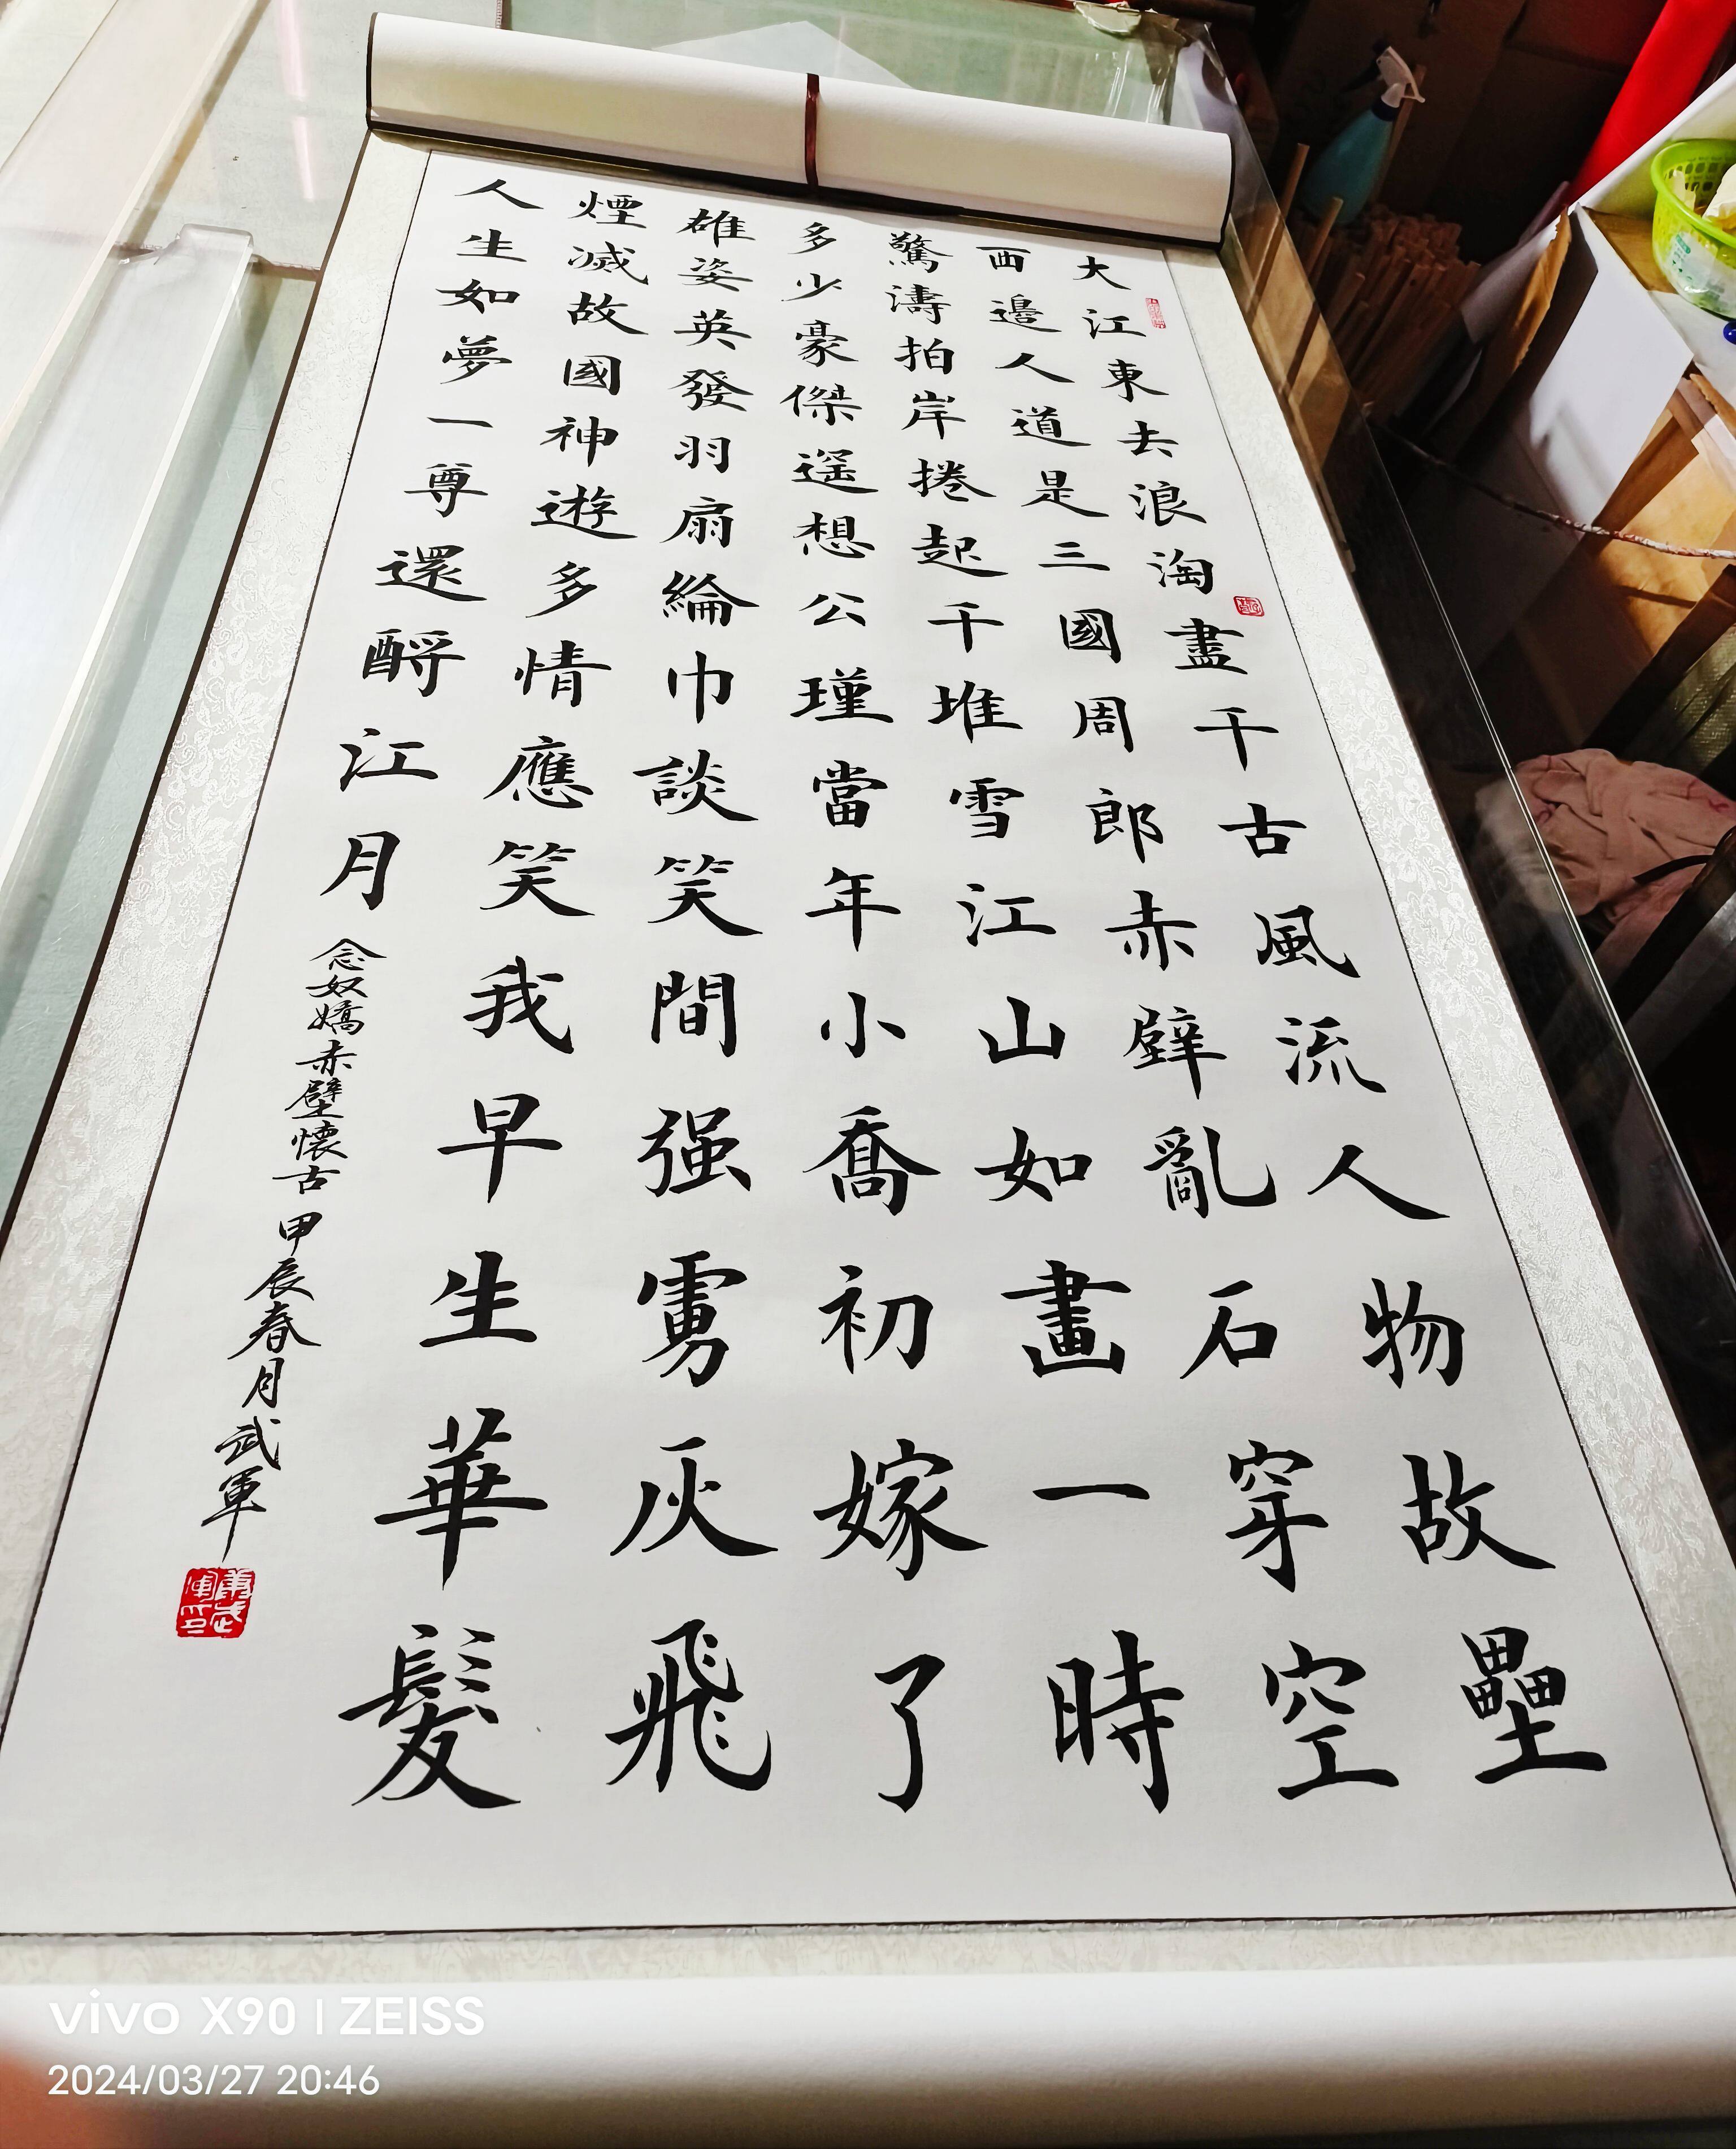 大江東去浪淘盡千古風流人物故壘
西邊人道是三國周郎赤壁亂石穿空
驚濤拍岸捲起千堆雪江山如畫一時
多少豪傑遥想公瑾當年小喬初嫁了
雄姿英發羽扇綸巾談笑間强虜灰飛
煙滅故國神遊多情應笑我早生華髮
人生如夢一尊還酹江月
念奴嬌赤壁懷古 甲辰春月武軍
vivo X90 | ZEISS
2024/03/27 20:46